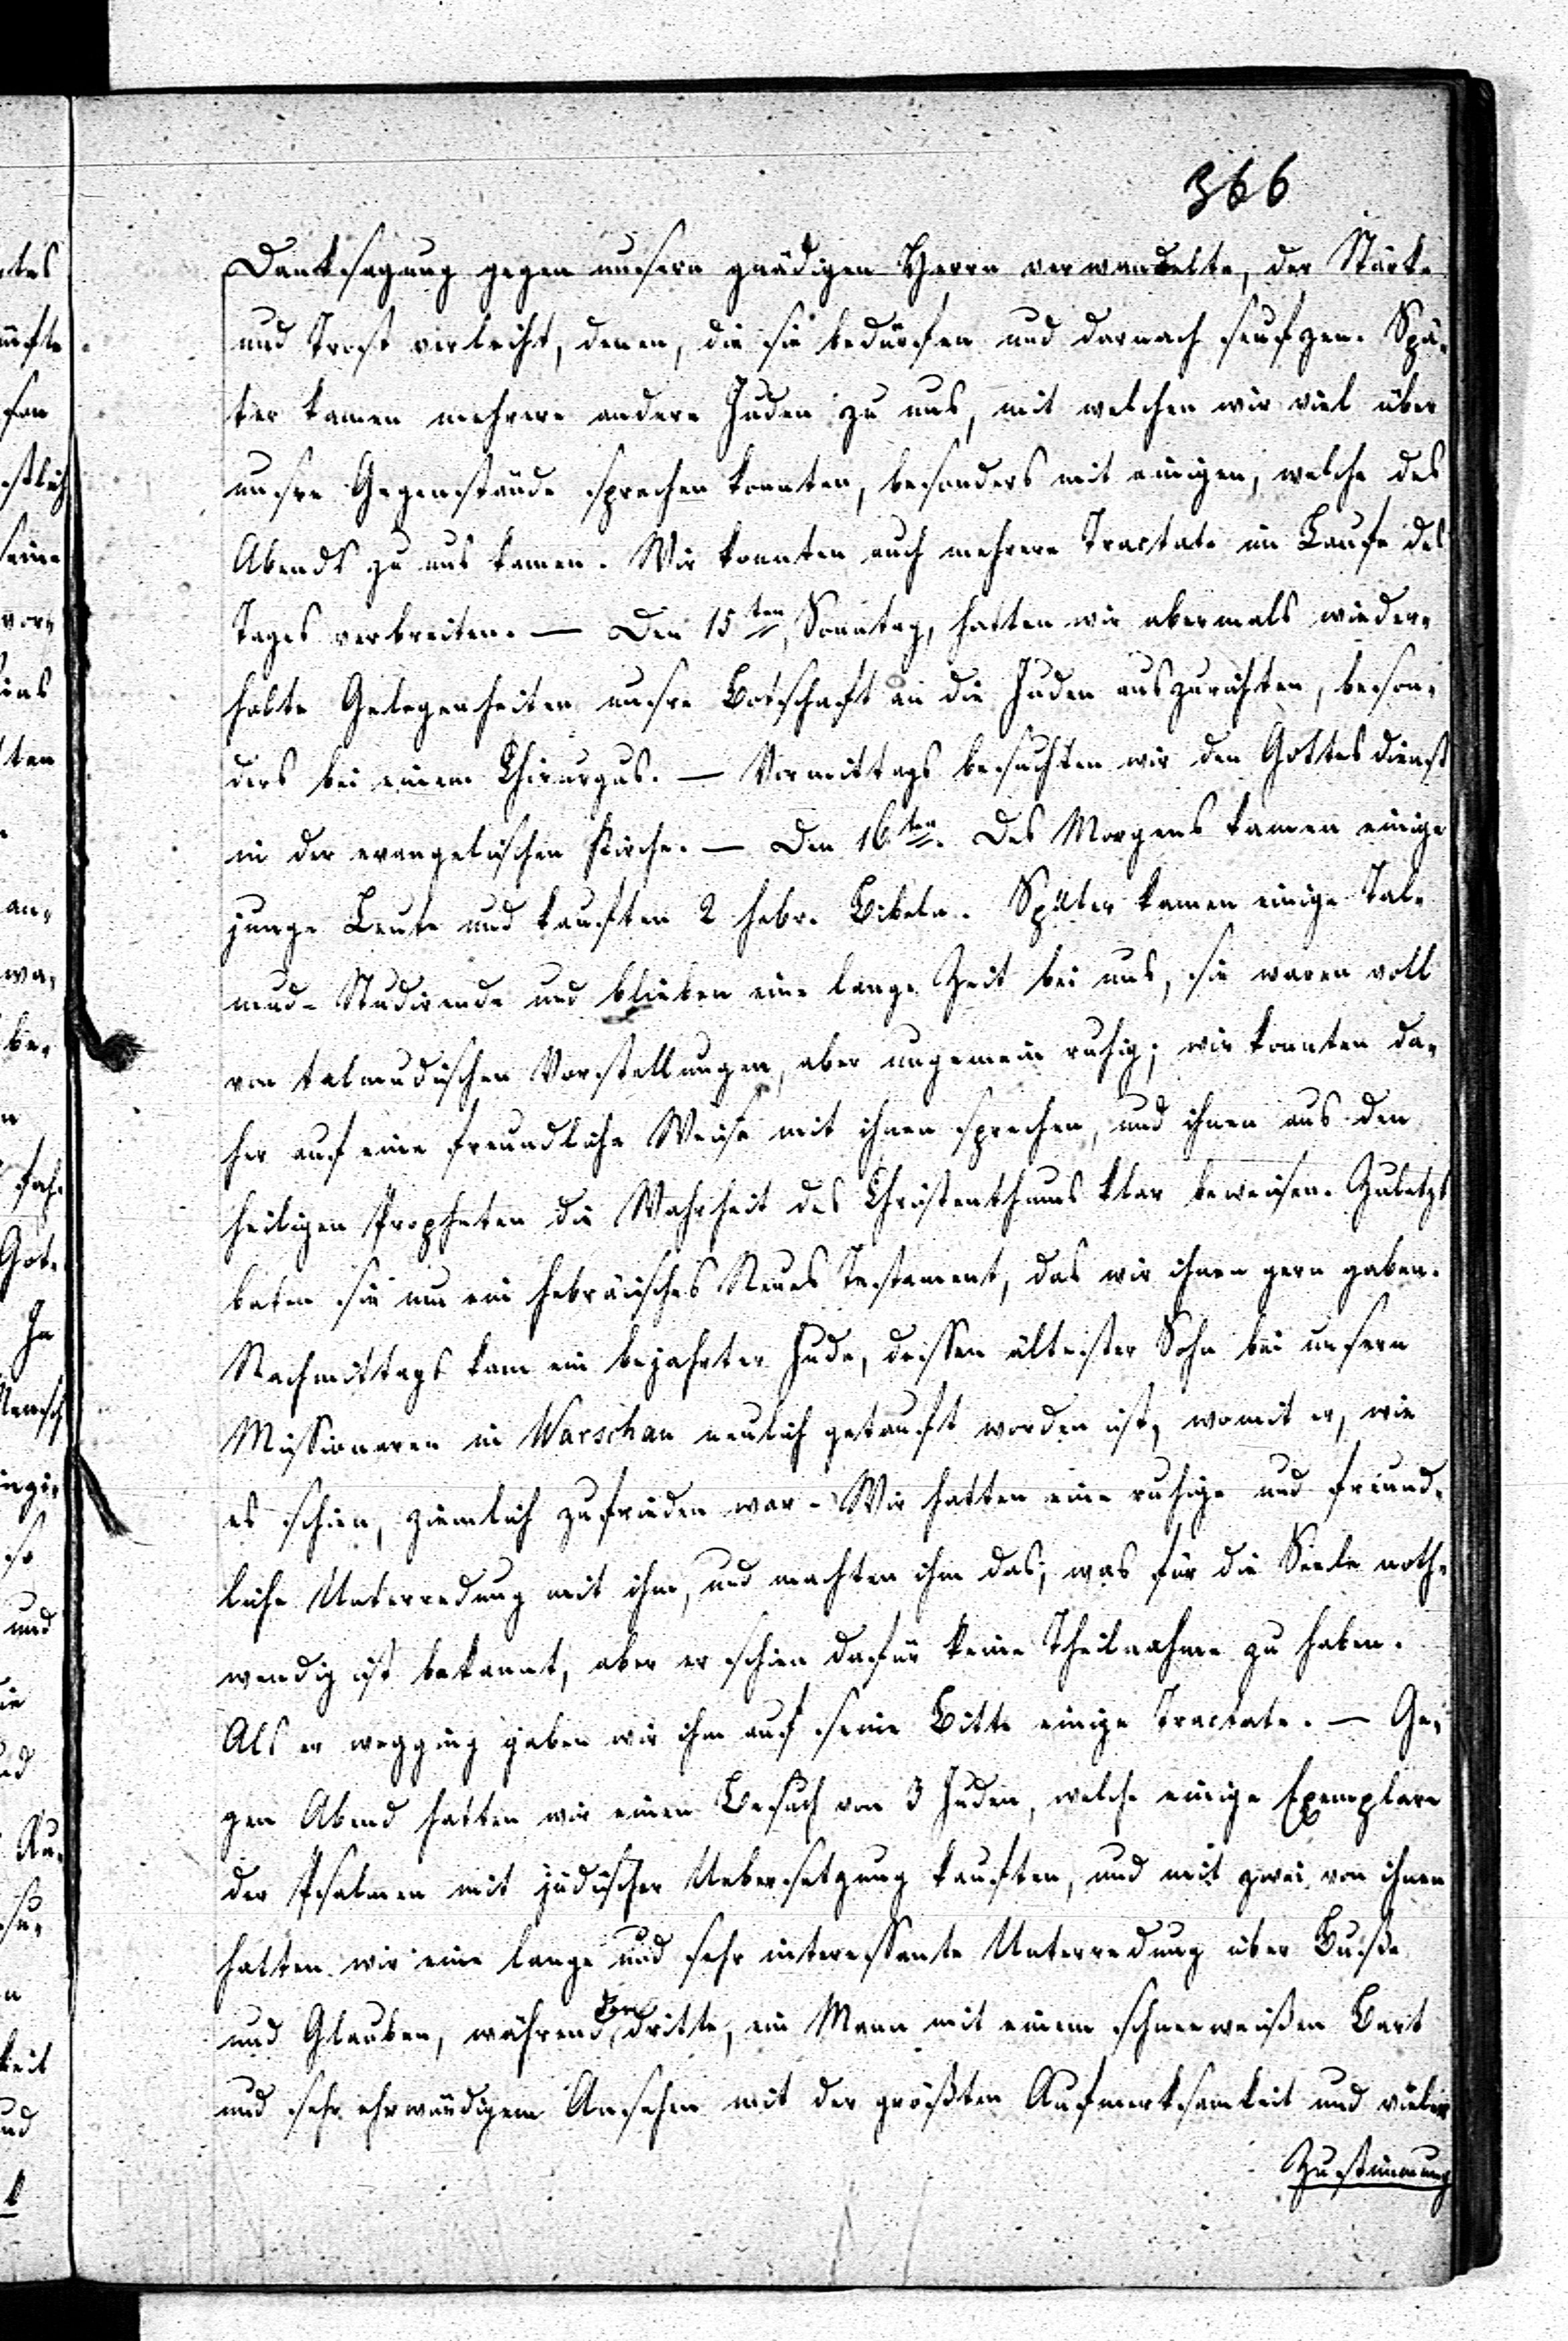 366
Danksagung gegen unsern gnädigen Herrn verwandelte, der Stärke
und Trost verleiht, denen, die sie bedürfen und darnach seufzen. Spä-
ter kamen mehrere andere Juden zu uns, mit welchen wir viel über
unsre Gegenstände sprechen konnten, besonders mit einigen, welche des
Abends zu uns kamen. Wir konnten auch mehrere Tractate im Laufe des
Tages verbreiten. — Den 15ten, Sonntag, hatten wir abermals wieder-
holte Gelegenheiten unsre Botschaft an die Juden auszurichten, beson-
ders bei einem Chirurgus. — Vormittags besuchten wir den Gottesdienst
in der evangelischen Kirche. — Den 16ten. Des Morgens kamen einige
junge Leute und kauften 2 hebr. Bibeln. Später kamen einige Tal-
mud-Studirende und blieben eine lange Zeit bei uns, sie waren voll
von talmudischen Vorstellungen, aber ungemein ruhig; wir konnten da-
her auf eine freundliche Weise mit ihnen sprechen, und ihnen aus den
heiligen Propheten die Wahrheit des Christenthums klar beweisen. Zuletzt
baten sie um ein hebräisches Neues Testament, das wir ihnen gern gaben.
Nachmittags kam ein bejahrter Jude, dessen ältester Sohn bei unsern
Missionaren in Warschau neulich getauft worden ist, womit er, wie
es schien, ziemlich zufrieden war. Wir hatten eine ruhige und freund-
liche Unterredung mit ihm, und machten ihm das, was für die Seele noth-
wendig ist bekannt, aber er schien dafür keine Theilnahme zu haben.
Als er wegging gaben wir ihm auf seine Bitte einige Tractate. — Ge-
gen Abend hatten wir einen Besuch von 3 Juden, welche einige Exemplare
der Psalmen mit jüdischer Uebersetzung kauften, und mit zwei von ihnen
hatten wir eine lange und sehr interessante Unterredung über Buße
und Glauben, während der dritte, ein Mann mit einem schneeweißen Bart
und sehr ehrwürdigem Ansehen mit der größten Aufmerksamkeit und vieler
Zustimmung